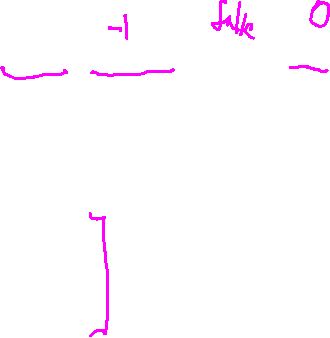 -1 false 0
]